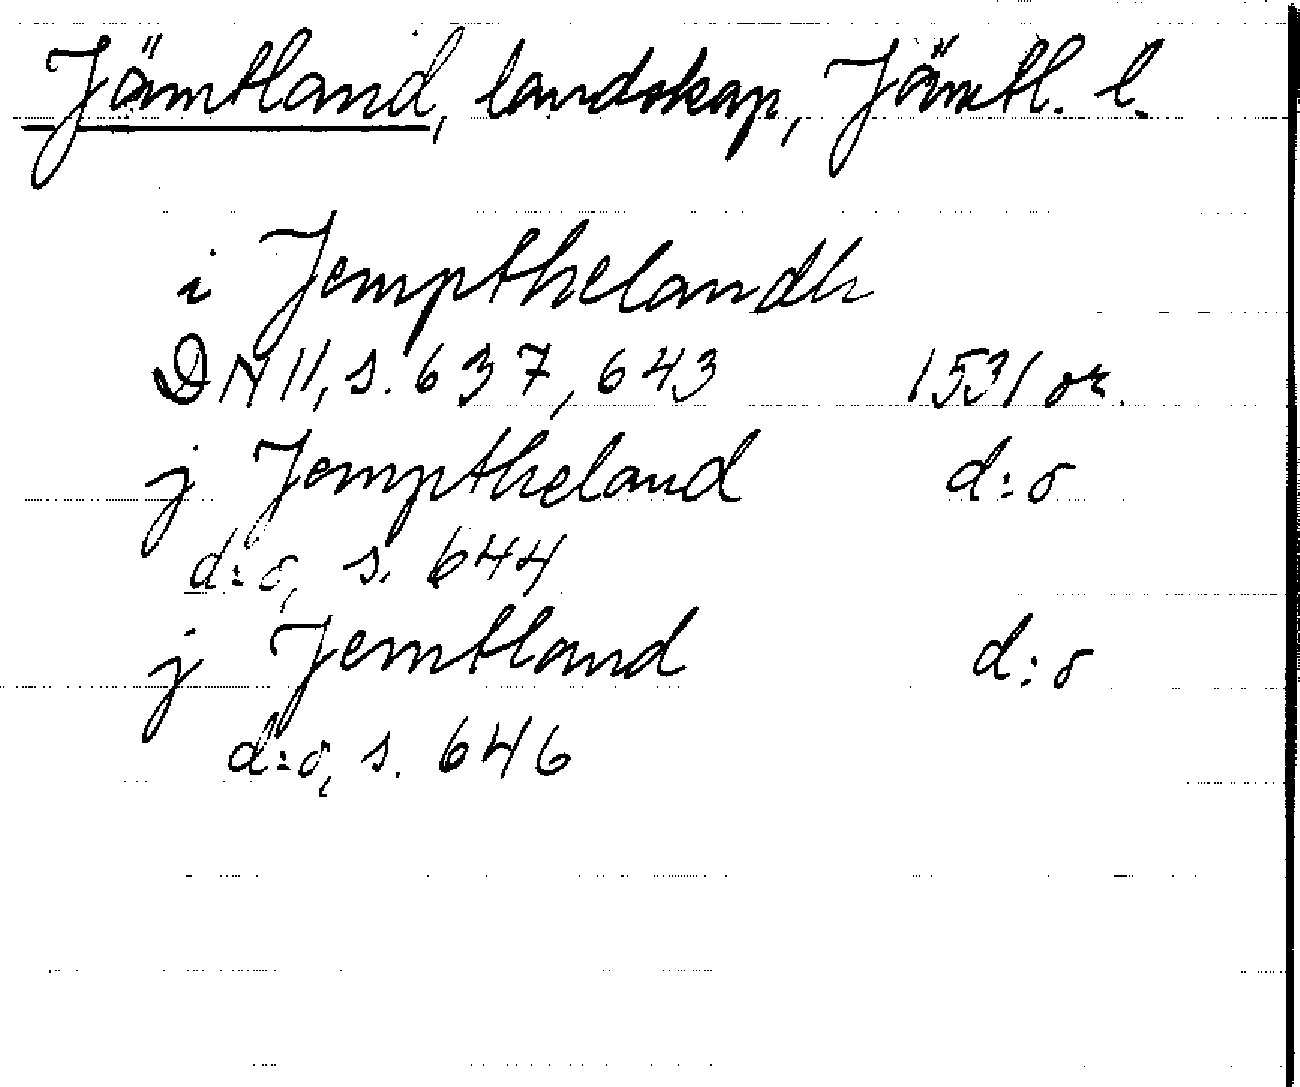 Jämtland, landskap, Jämtl. l.
i Jempthelandh
DN 11, s. 637, 643 1531 or.
j Jemptheland d:o
d:o, s. 644
j Jemtland d:o
d:o, s. 646